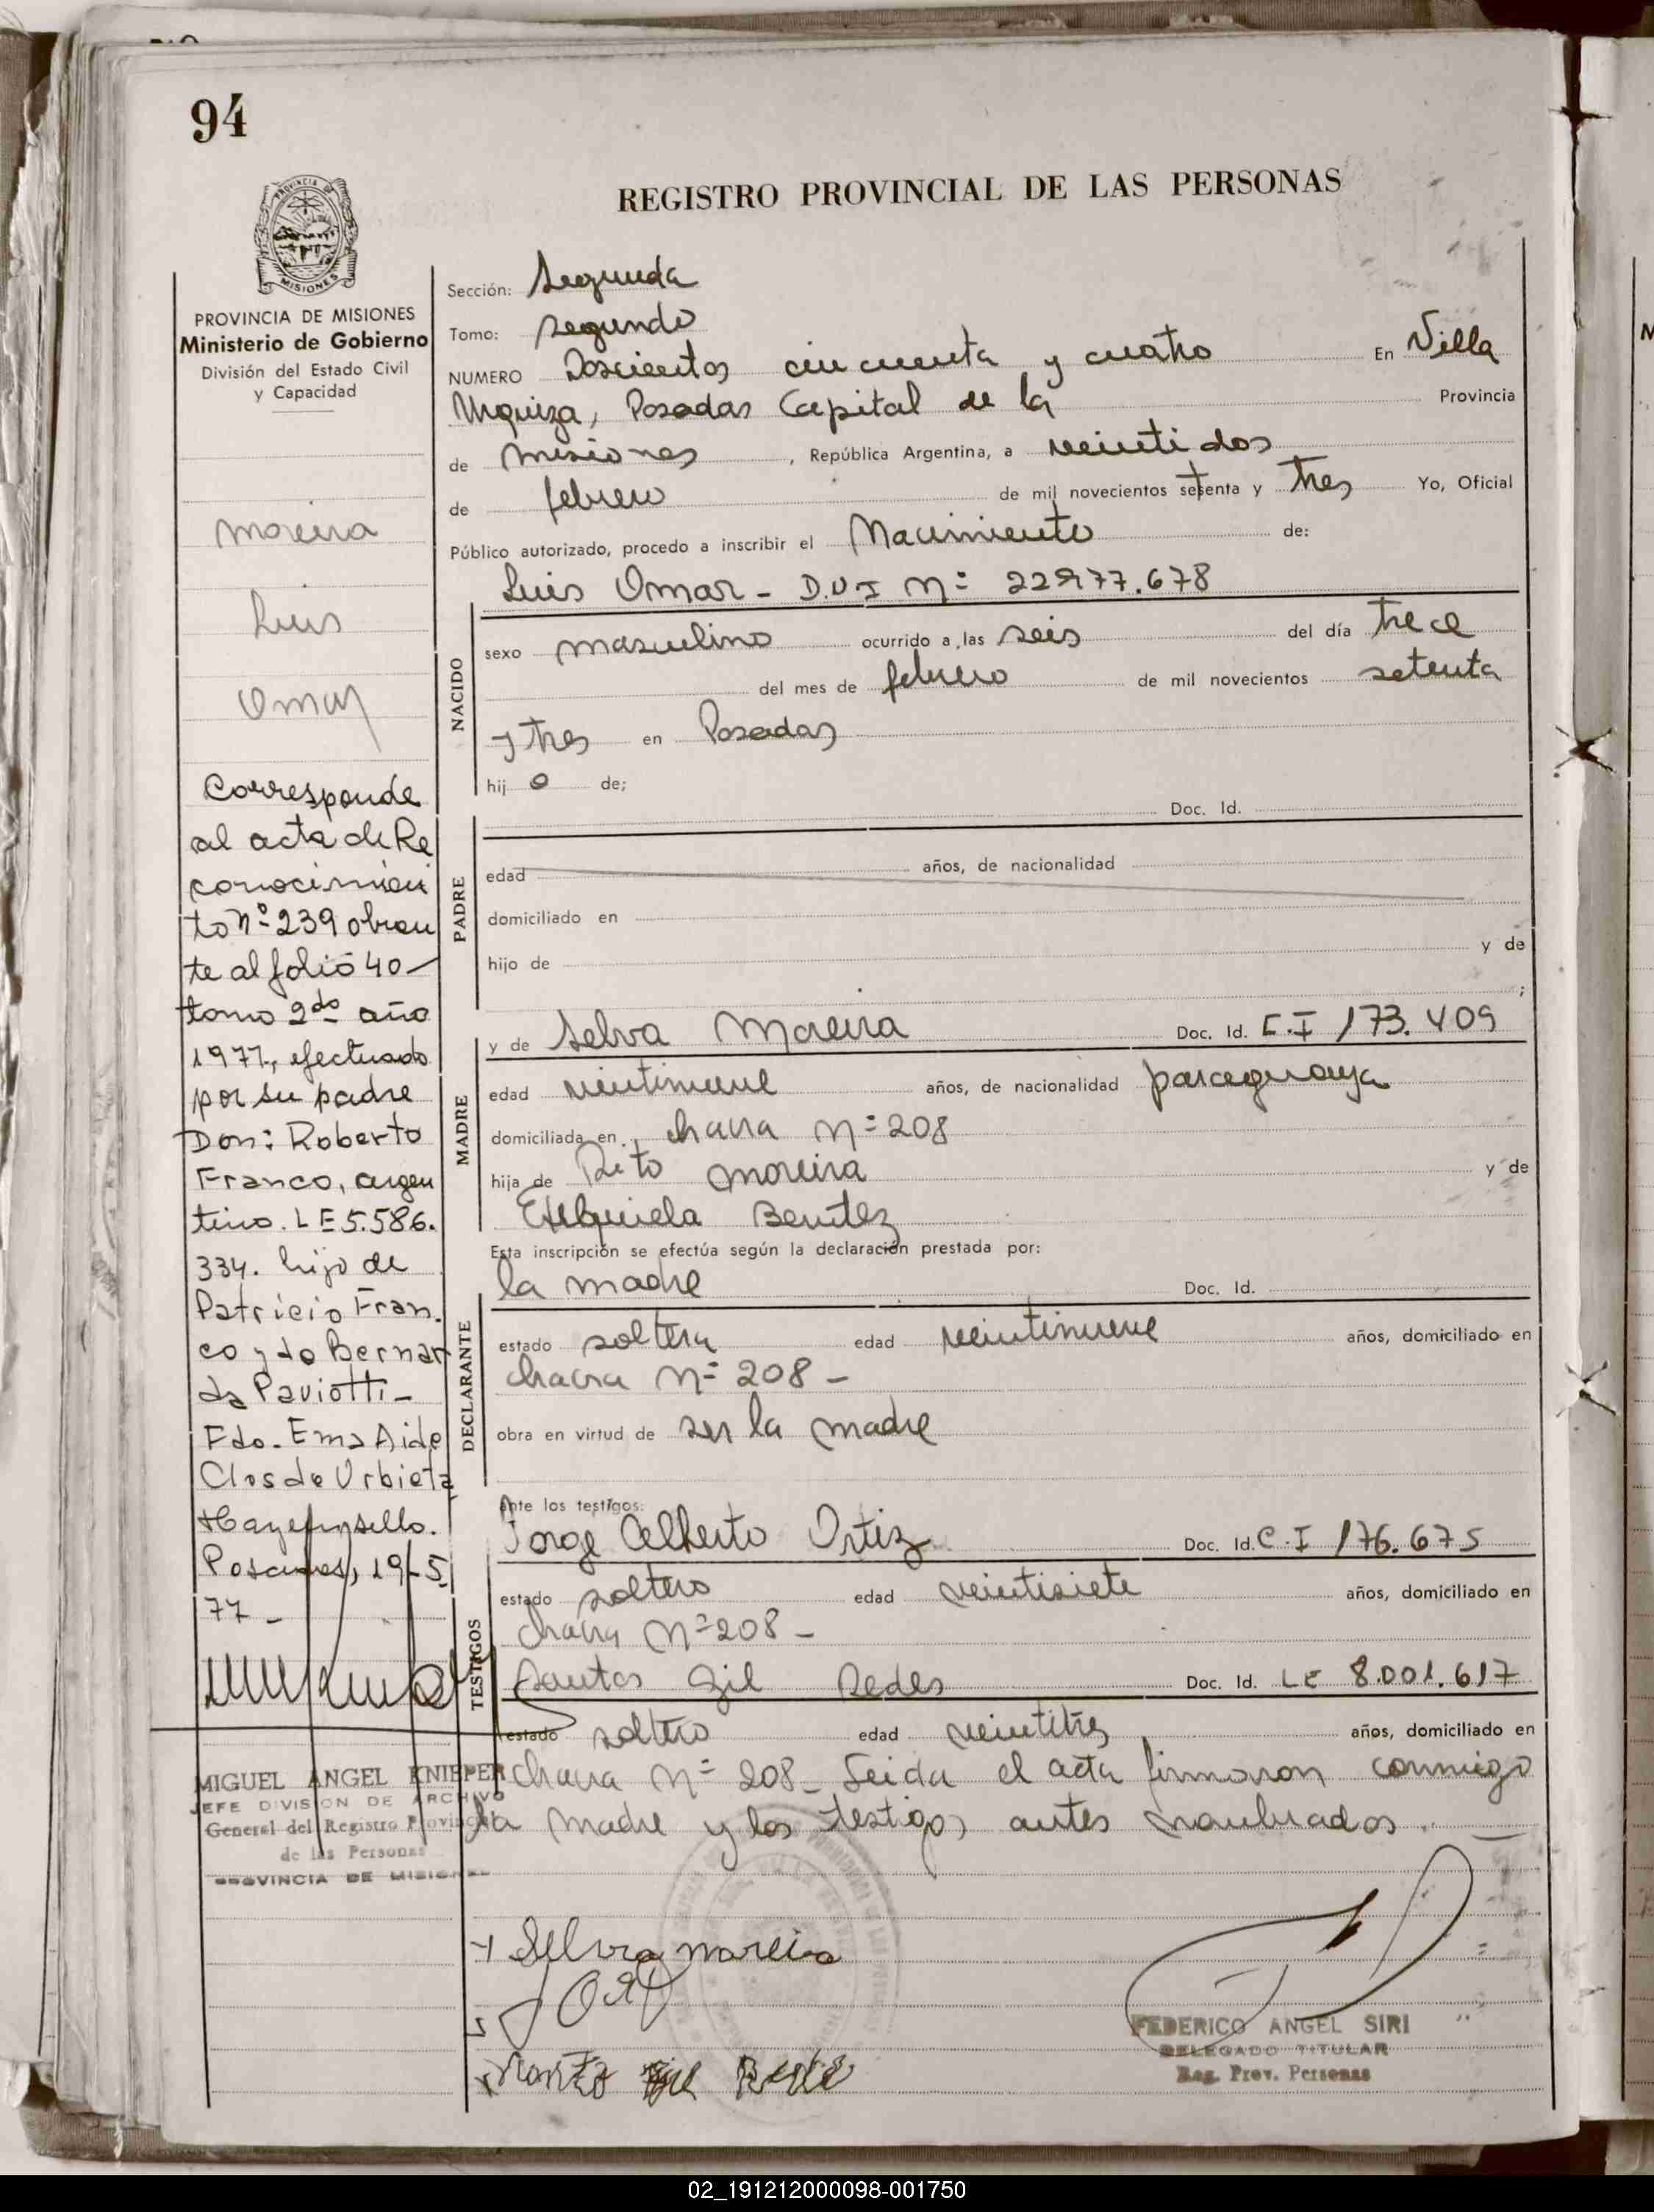 94
REGISTRO PROVINCIAL DE LAS PERSONAS
PROVINCIA DE MISIONES
PROVINCIA DE MISIONES
Ministerio de Gobierno
División del Estado Civil
y Capacidad
Moreira
Luis
Omar
Corresponde
al acta de Re
conocimien
to Nº 239 obran
te al folio 40-
tomo 2do año
1977, efectuado
por su padre
Don: Roberto
Franco, argen
tino. L E 5.586.
334. hijo de
Patricio Fran.
co y de Bernar
da Paviotti-
Fdo. Ema Aide
Clos de Urbieta
Hay un sello.
Posadas, 19-5
77-
MIGUEL ANGEL KNIEPER
JEFE DIVISION DE ARCHIVO
General del Registro Provincial
de las Personas
PROVINCIA DE MISIONES
Sección: Segunda
Tomo: segundo
NUMERO Doscientos cincuenta y cuatro En Villa
Urquiza, Posadas Capital de la Provincia
de Misiones, República Argentina, a veintidos
de febrero de mil novecientos setenta y tres Yo, Oficial
Público autorizado, procedo a inscribir el Nacimiento de:
Luis Omar - D.U.I Nº 22977.678
NACIDO
sexo masculino ocurrido a las seis del día trece
del mes de febrero de mil novecientos setenta
y tres en Posadas
hij o de;
Doc. Id.
PADRE
edad años, de nacionalidad
domiciliado en
hijo de y de
;
MADRE
y de Selva Moreira Doc. Id. C.I 173.409
edad veintinueve años, de nacionalidad paraguaya
domiciliada en chacra Nº 208
hija de Rito Moreira y de
Benitez
Esta inscripción se efectúa según la declaración prestada por:
la madre Doc. Id.
DECLARANTE
estado soltera edad veintinueve años, domiciliado en
chacra Nº 208 -
obra en virtud de ser la madre
ante los testigos:
TESTIGOS
Jorge Alberto Ortiz Doc. Id. C.I 176.675
estado soltero edad veintisiete años, domiciliado en
chacra Nº 208 -
Santos Gil Doc. Id. LE 8.001.617
estado soltero edad veintitres años, domiciliado en
chacra Nº 208- Leida el acta firmaron conmigo
la madre y los testigos antes nombrados.
Selva Moreira
FEDERICO ANGEL SIRI
DELEGADO TITULAR
Reg. Prov. Personas
02_191212000098-001750